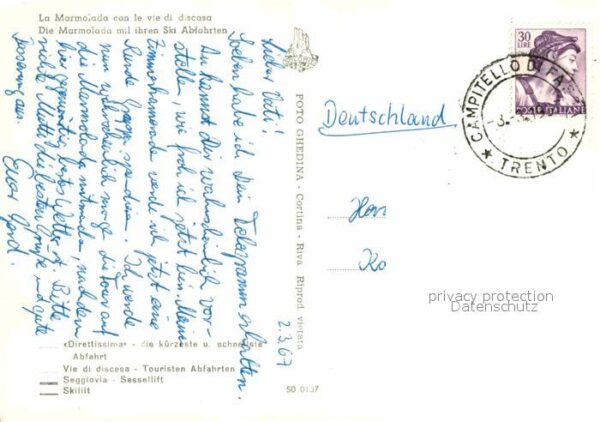 La Marmolada con le vie di discesa
Die Marmolada mit ihren Ski Abfahrten
Lieber Vati!
Soeben habe ich Dein Telegramm erhalten.
Du kannst Dir wahrscheinlich vor-
stellen, wie froh ich jetzt bin. Meine
Zimmerkameraden werde ich jetzt eine
Runde
nun wahrscheinlich morgen die Tour auf
die Marmolada mitmachen, nachdem
hier gegenwärtig bestes Wetter ist. Bitte
richte Mutti die besten Grüße und gute
Besserung aus.
Euer Gerd.
2.3.67
FOTO GHEDINA - Cortina - Riva Riprod. vietata
Deutschland
30
LIRE
POSTE ITALIANE
CAMPITELLO DI FA
★ TRENTO ★
Herr
Ko
privacy protection
Datenschutz
«Direttissima» - die kürzeste u. schnellste
Abfahrt
Vie di discesa - Touristen Abfahrten
Seggiovia - Sessellift
Skilift
50 0137